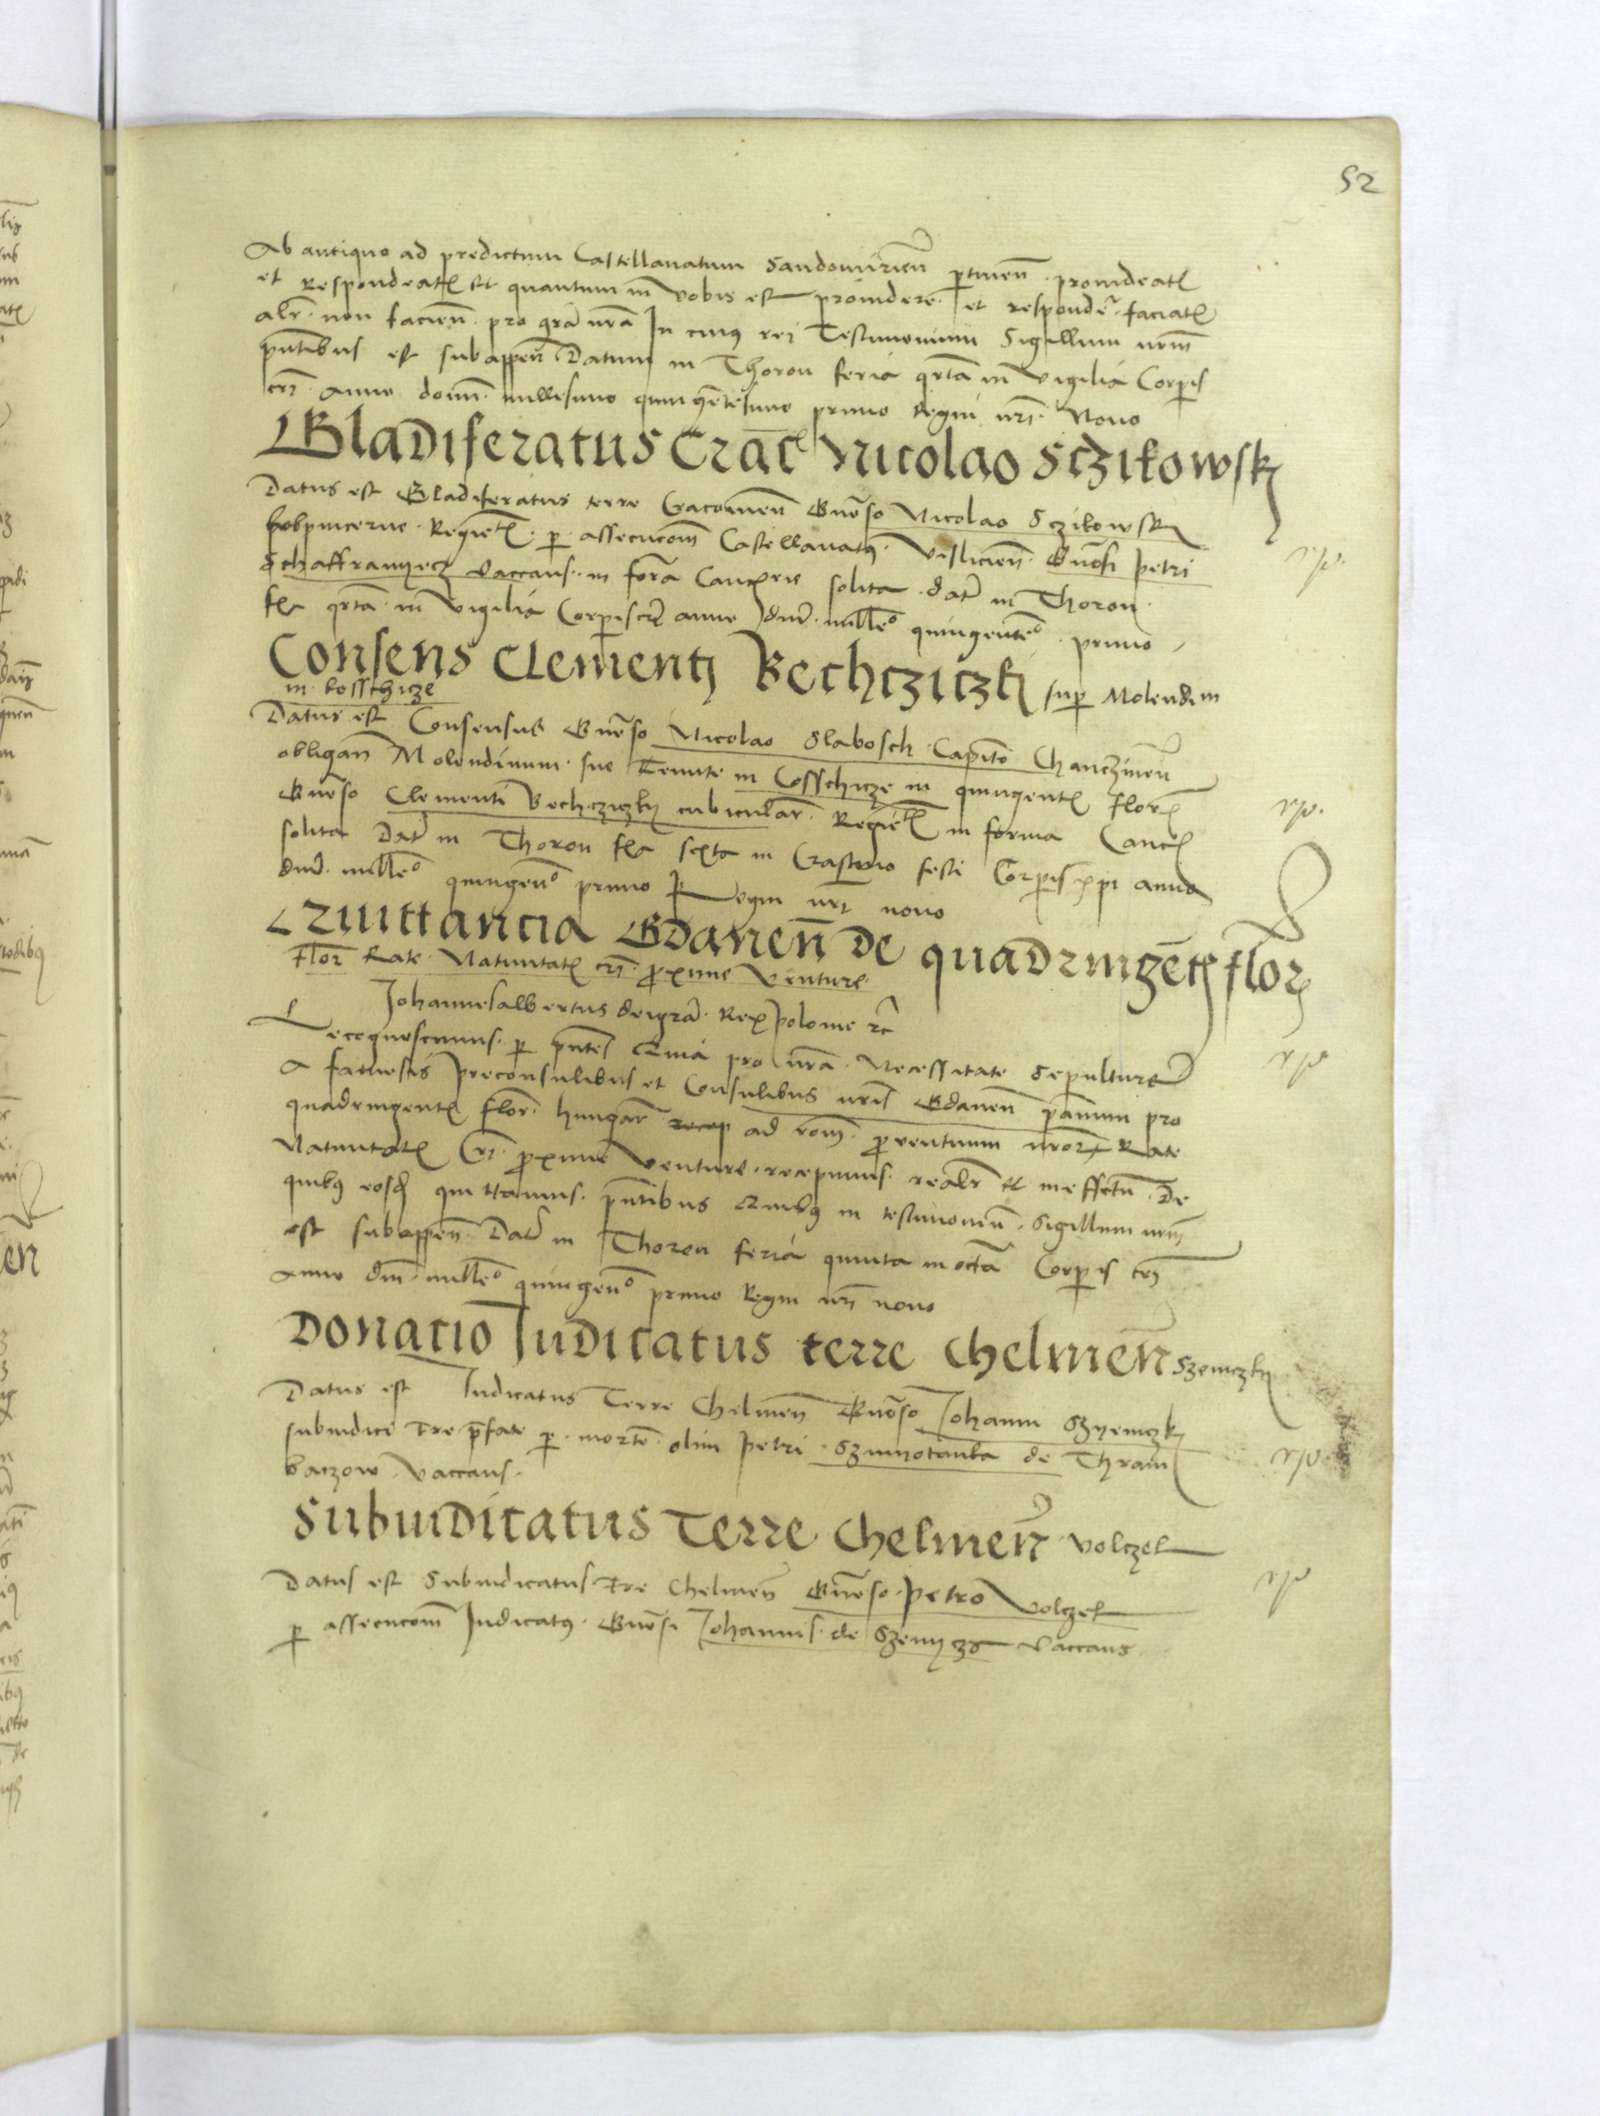 52
Ab antiquo ad predictum Castellanatum Sandomirien ptinen. prouideatis
et Respondeatis et quantum in vobis est prouidere. et responder. faciatis
alr. non facien. pro gra nra In cuius rei Testimonium Sigillum nrm
pntibus est subappen Datum in Thoron feria qrta in vigilia Corpis
cri. anno domi. millesimo quingentesimo primo Regni nri. Nono
Gladiferatus Crac Nicolao Sczikowsky
Datus est Gladiferatus terre Cracouien Gnoso Nicolao Sczikowsky
Subpincerne. Regie. p. assecucom Castellanatus. Vislicien. Gnosi Petri
Schaffranyecz vaccans. in fora Cancrie solita. dat in Thoron.
fia qrta. in vigilia Corpiscri anno dni. milleo quingenteo. primo
Consens Clementi Bechcziczki sup Molendin
in Kosschicze
Datus est Consensus Gnoso Nicolao Slabosch Capito Chanczinen
obligan Molendinum. sue Tenute in Cosschicze in quingentis floris
Gnoso Clementi Bechcziczki cubicular. Regie in forma Canc
solita Dat in Thoron fia sexta in Crastino festi Corpis xpi anno
dni. milleo quingeno primo Regni nri nono
Quittancia Gdanen de quadringetis flor
Flor Rate. Natiuitatis cri. proxime venture
Johannesalbertus deigra. Rex polonie rc
Recognoscimus. p pntes Quia pro nra. Necessitate Sepulture
A famesis preconsulibus et Consulibus nris Gdanen panium pro
quadringentis flor. hungar recep ad rom. prouentuum nror Rate
Natiuitatis Cri. proxime venture. recepimus. realr et in effectu. De
quibus eosdem quittamus. pntibus Quibus in testimoniu. Sigillum nrm
est subappen. Dat in Thoron feria quinta in octa Corpis cri
Anno dni. milleo quingeno primo Regni nri nono
Donacio Iudicatus terre Chelmen Szemczky
Datus est Iudicatus Terre Chelmen Gnoso Johanni Szyemczky
subiudici Tre pfate p. morte. olim Petri. de Thram
baczow. vaccans.
Subiudicatus Terre Chelmen volczek
Datus est Subiudicatus Tre Chelmen Gnoso. Petro volczek
p assecucom Iudicatus. Gnosi Johannis. de vaccans